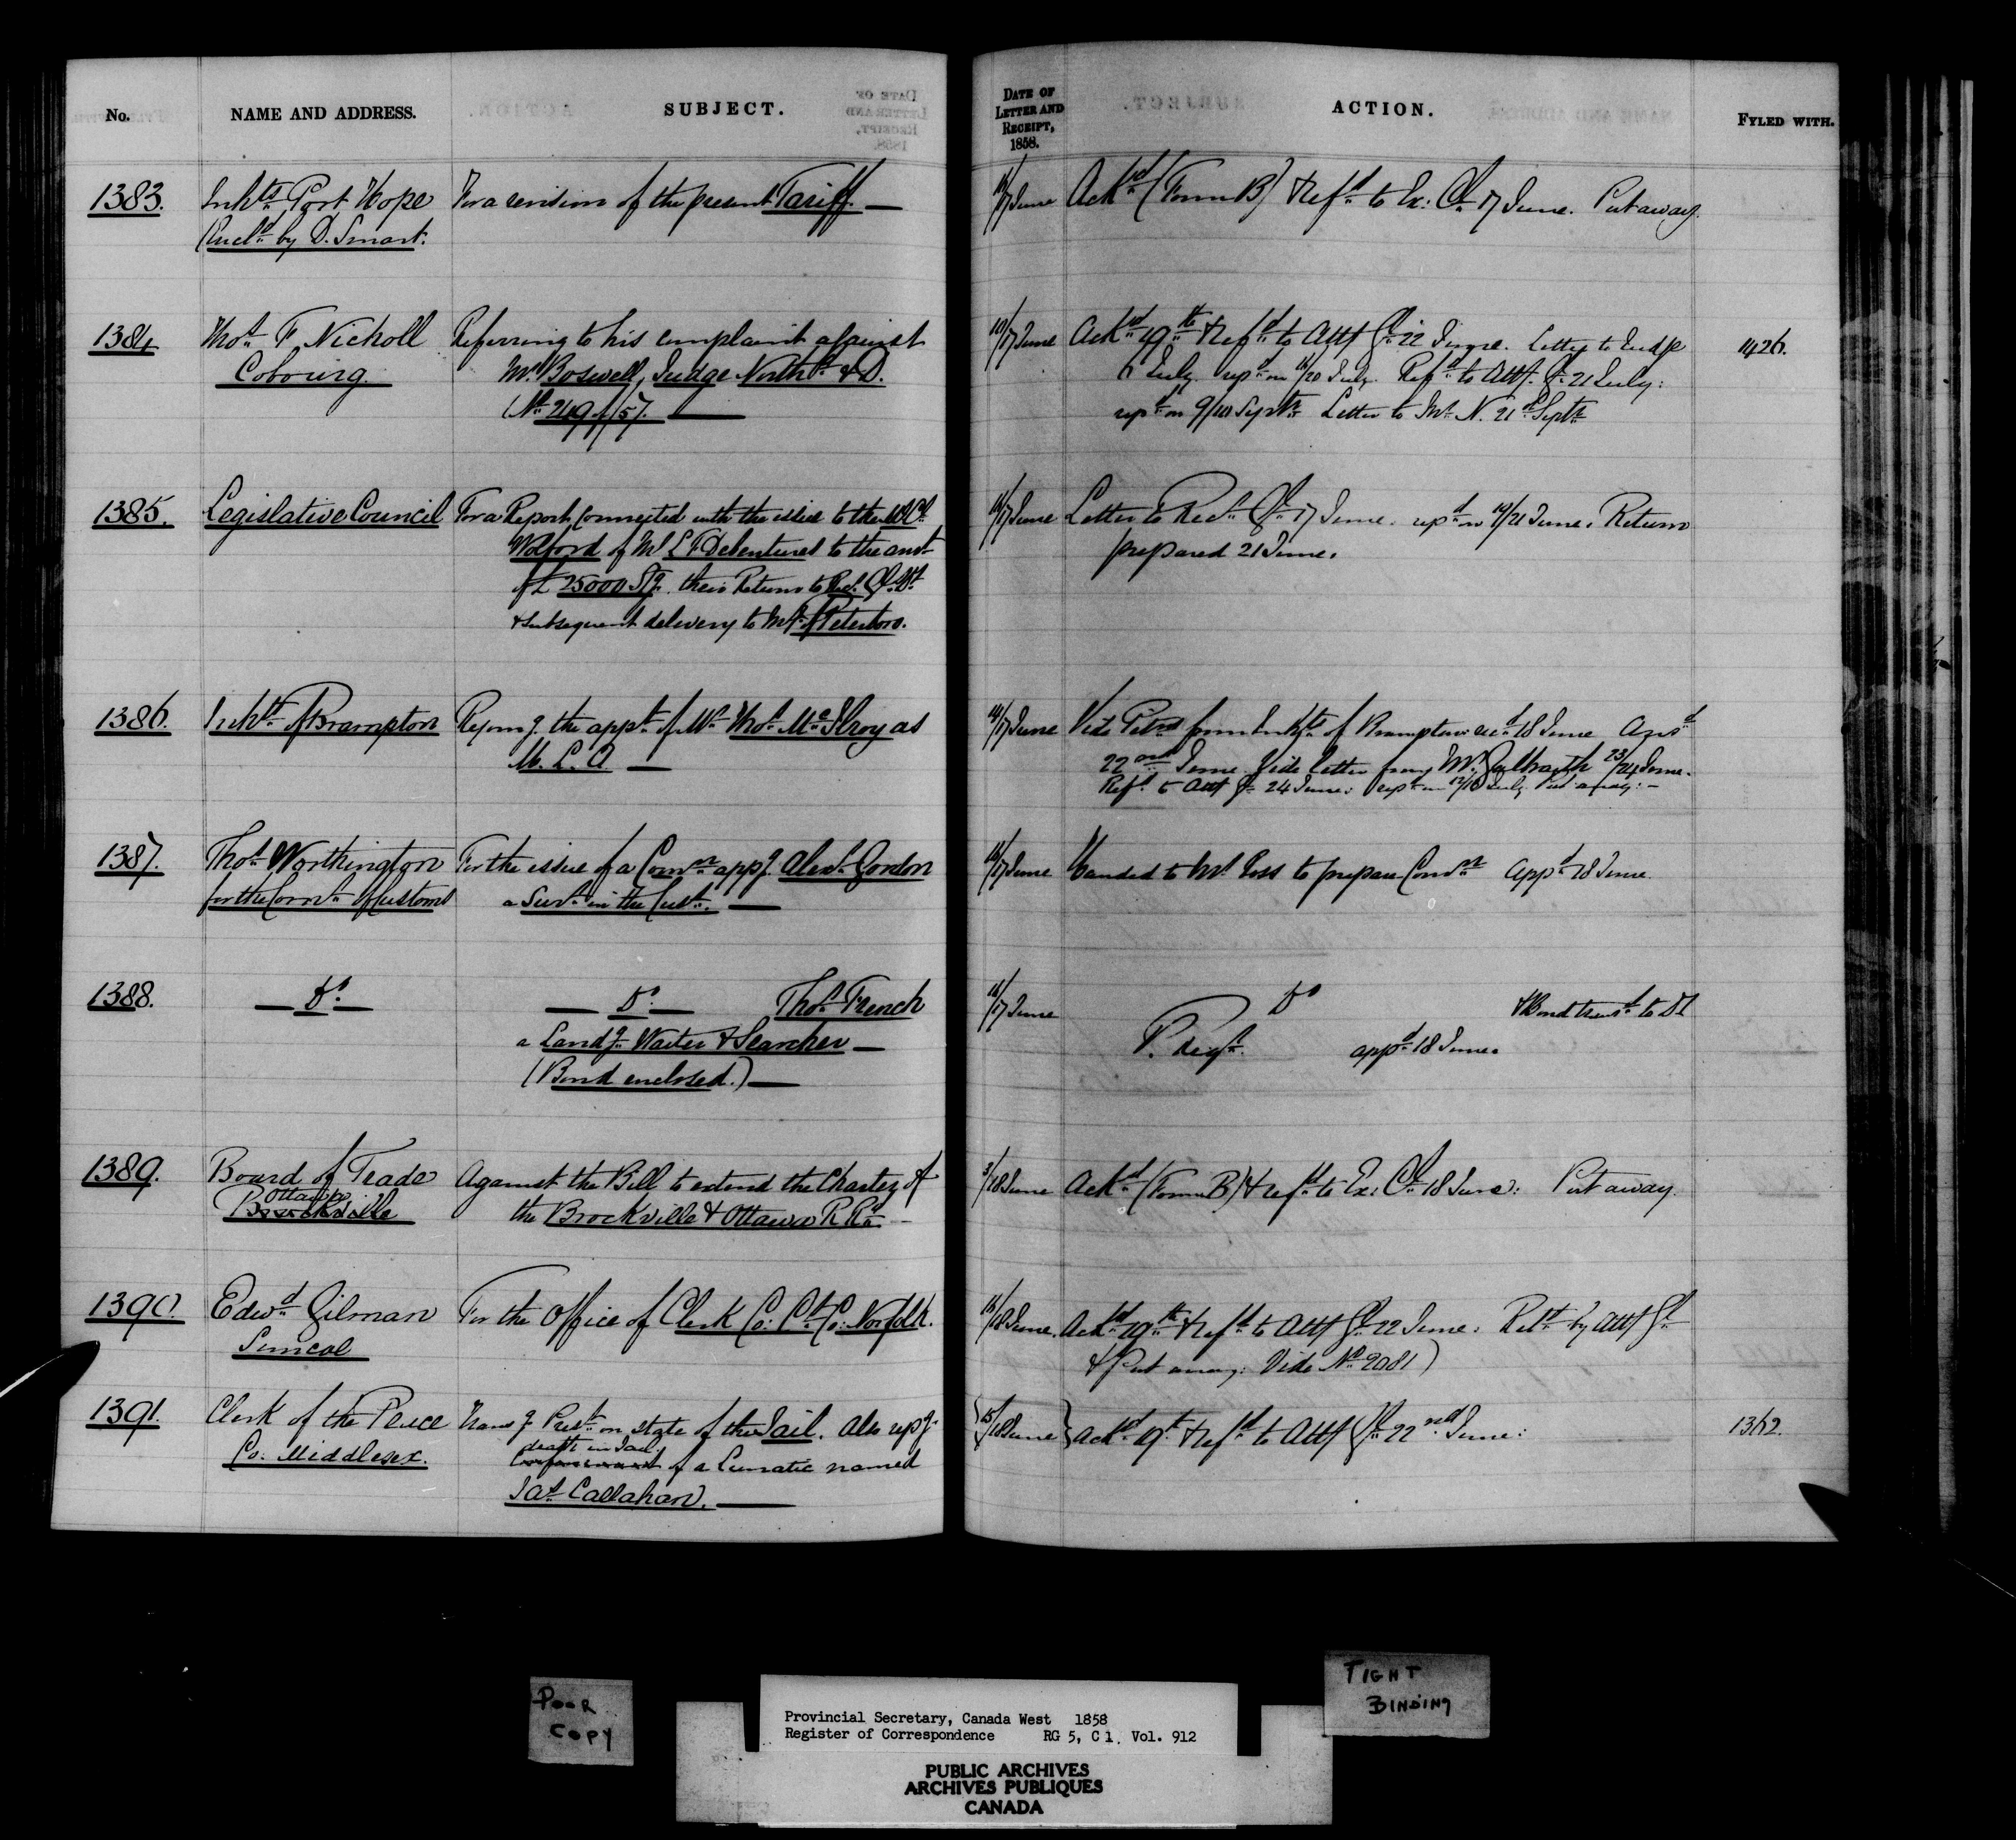 No. NAME AND ADDRESS. SUBJECT. DATE OF LETTER AND RECEIPT, 1858. ACTION. FYLED WITH.
1383. Inhts Port Hope For a revision of the present Tariff. — 17 June Ackd (Form B) & Refd to Ex: Cl 17 June. Put away.
(Encld by D. Smart.
1384 Thos F Nicholl Referring to his complaint against 17 June Ackd 19th & Refd to Atty Gl 22 June. Letter to Judge 1426.
Cobourg. Mr Boswell, Judge Northd & D. 6 July. repd on 20 July. Refd to Atty. Gl 21 July:
(No 249 of /57. — repd on 9/10 Septr Letter to Mr N. 21st Septr
1385. Legislative Council For a Report connected with the issue to the 17 June Letter to Recr Gl 17 June. repd on 21 June. Return
Wolford of M L F Debentures to the amt prepared 21 June.
of £ 25000 Stg. their Return to Rec. Gl.
& subsequent delivery to of Peterboro.
1386. Inhts of Brampton the appt of Mr Thos McIlroy as 17 June Vide Petn from Inhts of Brampton recd 18 June Ansd
M. L. A — 22nd June Vide letter from Mr Galbraith 23/24 June.
Refd to Atty Gl 24 June: repd on July Put away: —
1387. Thos Worthington For the issue of a Comn appg Alexr Gordon 17 June Handed to Mr Ross to prepare Comn Appd 18 June.
for the Comr of Customs a Survr in the Cust. —
1388. — Do — — Do — Thos French 17 June Do & Bond transd to
a Landg Waiter & Searcher — P. appd 18 June.
(Bond enclosed.) —
1389. Board of Trade Against the Bill to extend the Charter of 3/18 June Ackd (Form B) & refd to Ex: Cl 18 June: Put away.
Ottawa
Brockville the Brockville & Ottawa R Rd. —
1390. Edwd Gilman For the Office of Clerk Co: Ct Co: Norfolk. 18 June. Ackd 19th & refd to Atty Gl 22 June: Retd by Atty Gl
Simcoe & Put away: Vide No 2081)
1391. Clerk of the Peace Transg Prest on state of the Jail. Also repg 15/18 June Ackd 19th & refd to Atty Gl 22nd June: 1362.
death in Jail
Co: Middlesex. Confinement of a Lunatic named
Jas Callahan. —
POOR
COPY
TIGHT
BINDING
Provincial Secretary, Canada West 1858
Register of Correspondence RG 5, C 1. Vol. 912
PUBLIC ARCHIVES
ARCHIVES PUBLIQUES
CANADA